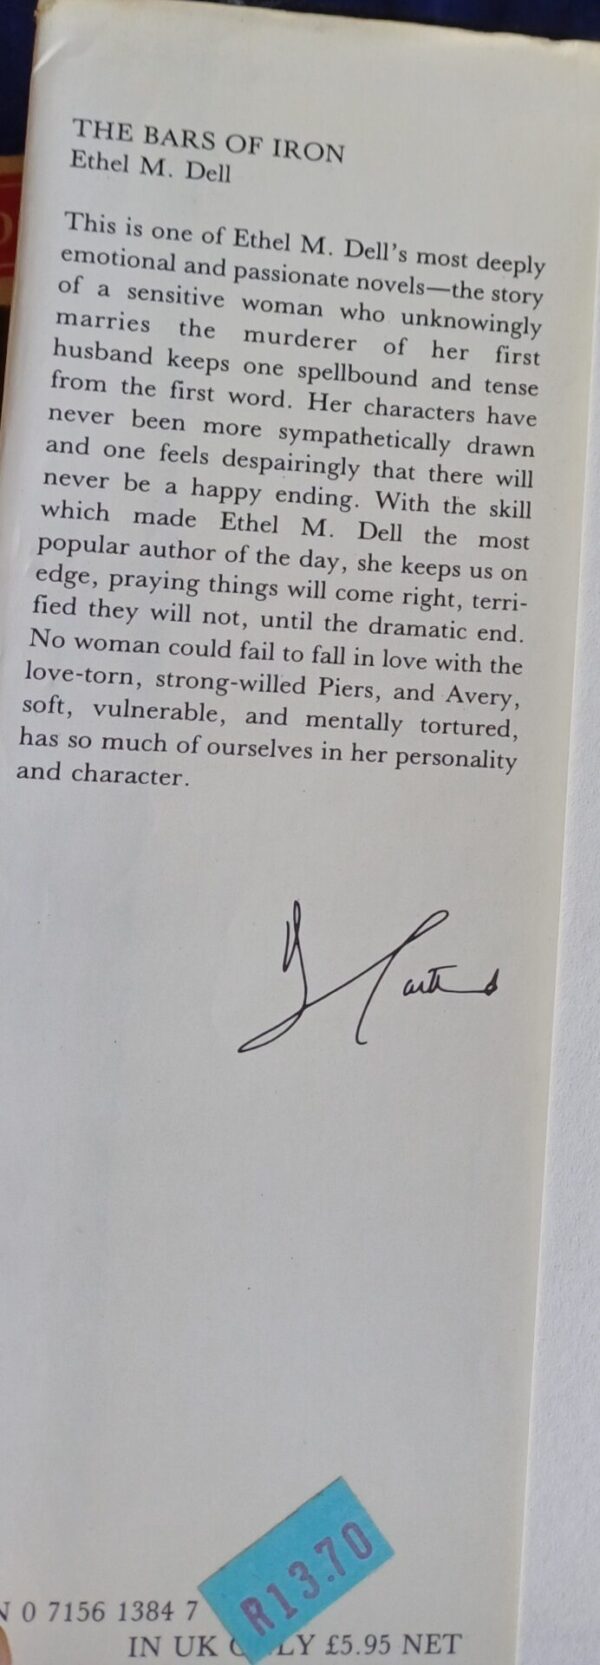 THE BARS OF IRON
Ethel M. Dell
This is one of Ethel M. Dell's most deeply
emotional and passionate novels—the story
of a sensitive woman who unknowingly
marries the murderer of her first
husband keeps one spellbound and tense
from the first word. Her characters have
never been more sympathetically drawn
and one feels despairingly that there will
never be a happy ending. With the skill
which made Ethel M. Dell the most
popular author of the day, she keeps us on
edge, praying things will come right, terri-
fied they will not, until the dramatic end.
No woman could fail to fall in love with the
love-torn, strong-willed Piers, and Avery,
soft, vulnerable, and mentally tortured,
has so much of ourselves in her personality
and character.
R13.70
N 0 7156 1384 7
IN UK LY £5.95 NET